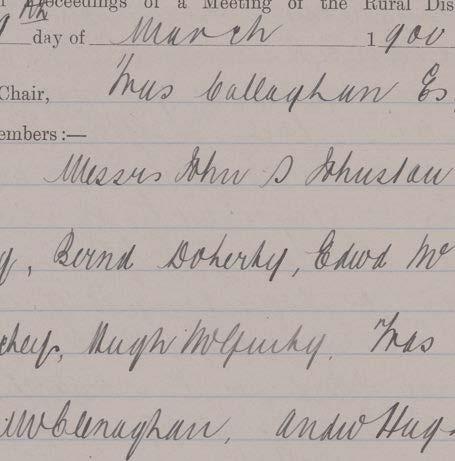 Proceedings of a Meeting of the Rural Dis
9th day of March 1900
Chair, Fras Callaghan Es
embers:—
Messrs John S Johnston
Bernd Doherty, Edwd Mc
Hugh McGurky. Fras
McClenaghan, Andw Hug